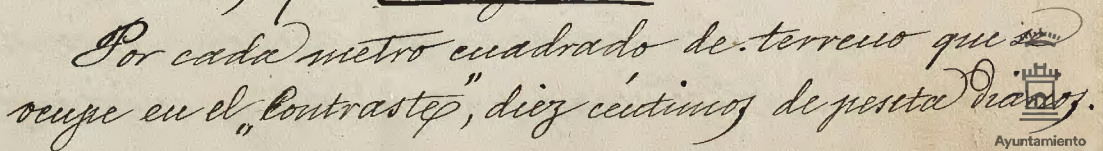 Por cada metro cuadrado de terreno que se
ocupe en el „Contraste", diez céntimos de peseta diarios.
Ayuntamiento